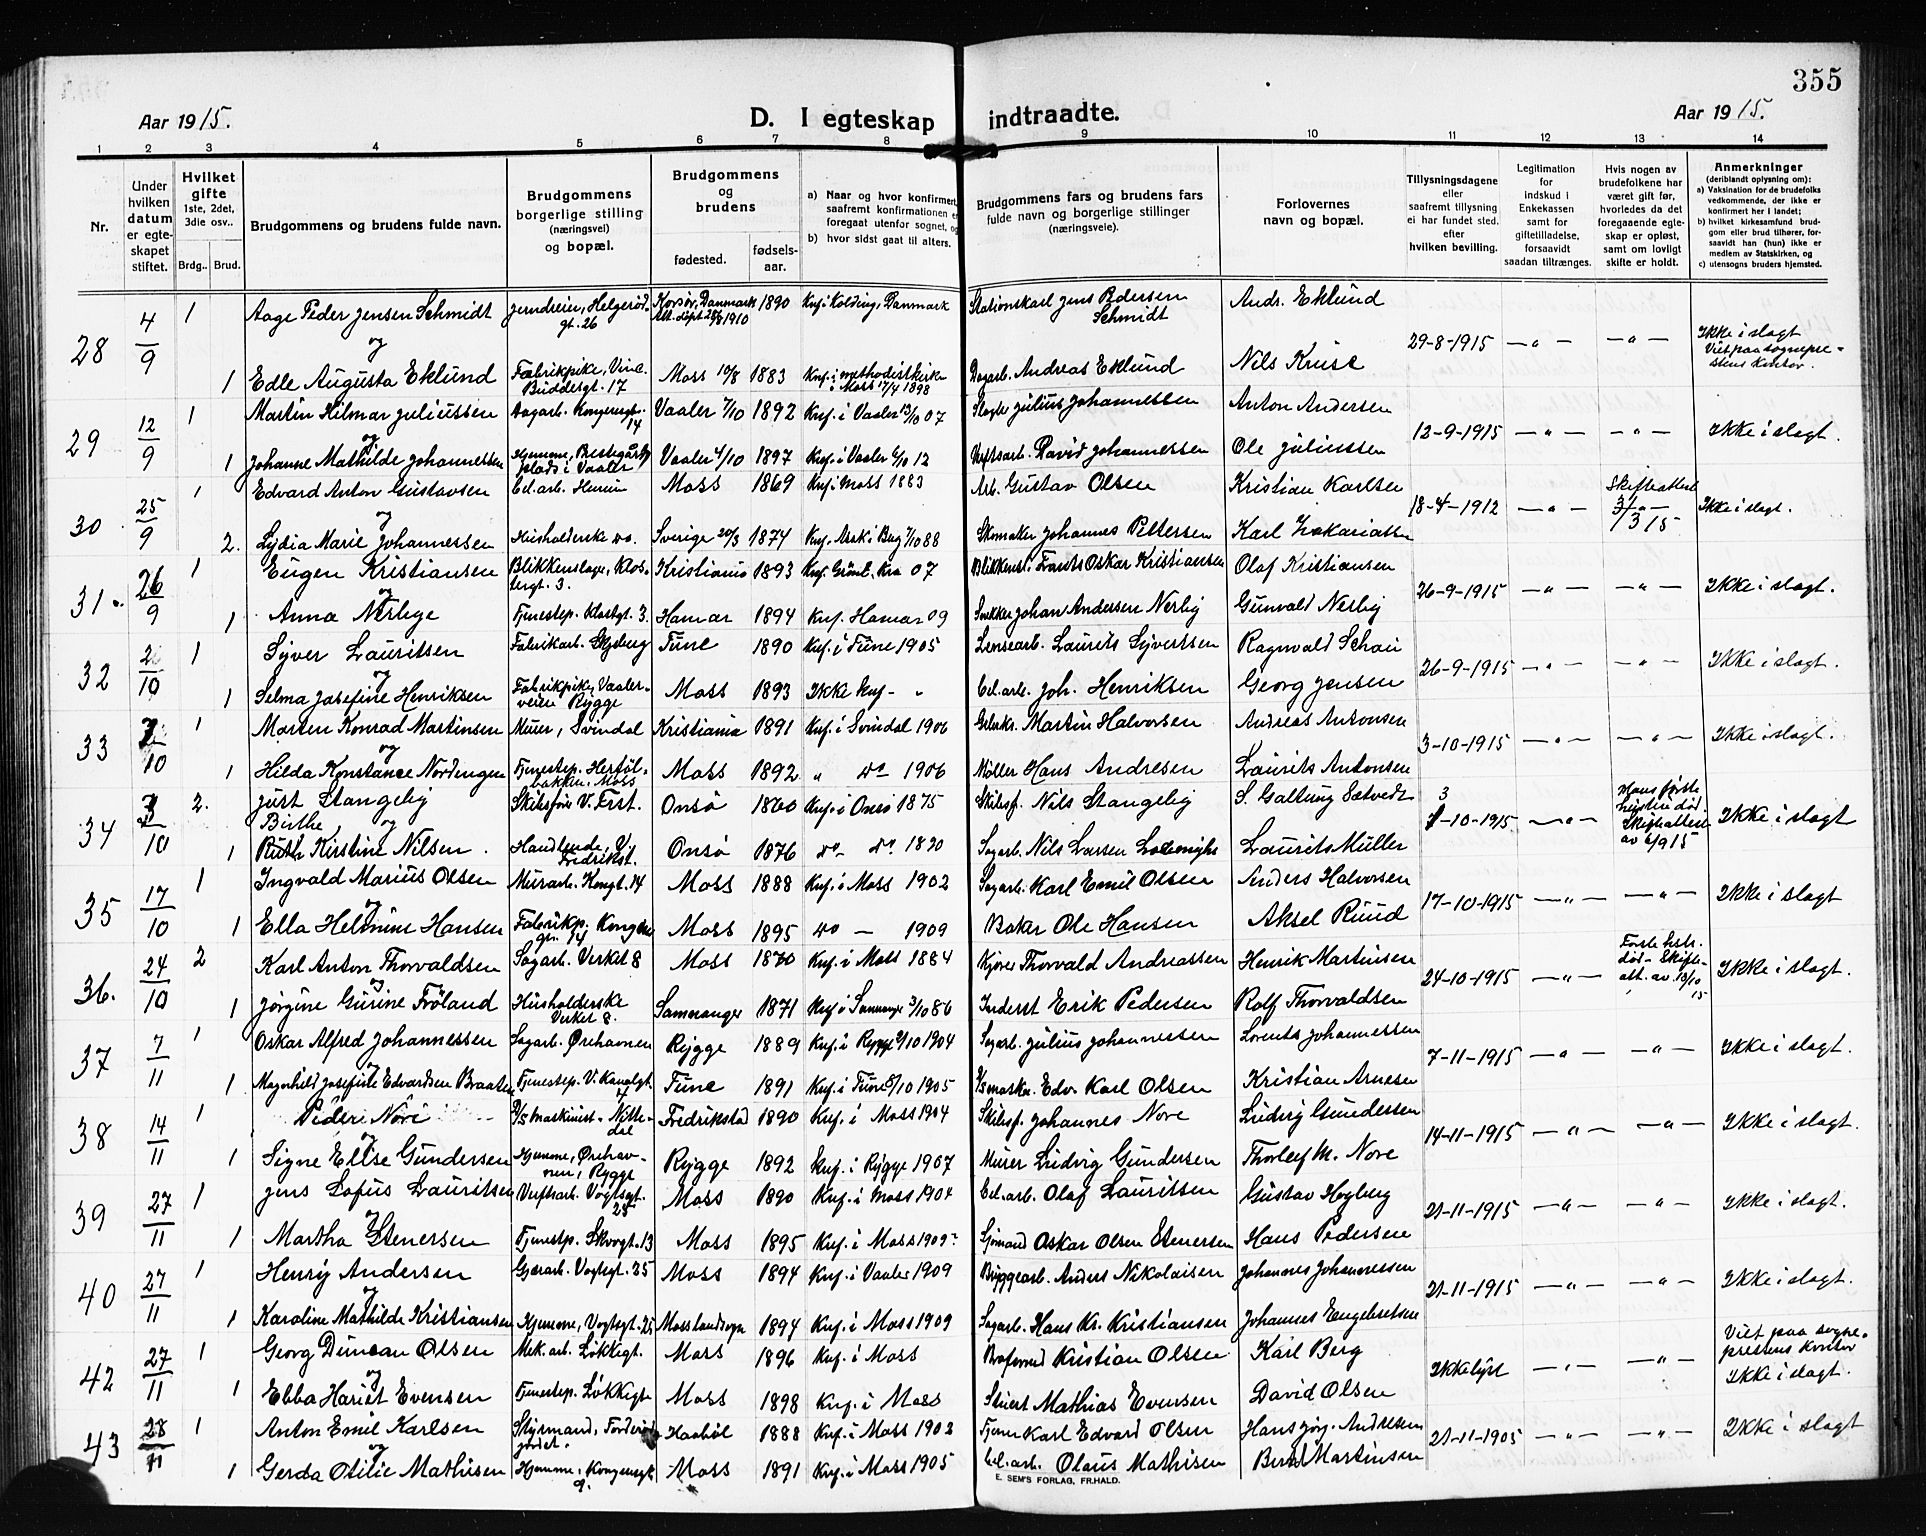 355
Aar 1915.
D. I egteskap indtraadte.
Aar 1915.
1 2 3 4 5 6 7 8 9 10 11 12 13 14
Nr.
Under hvilken datum er egteskapet stiftet.
Hvilket gifte 1ste, 2det, 3die osv..
Brdg.. Brud.
Brudgommens og brudens fulde navn.
Brudgommens borgerlige stilling (næringsvei) og bopæl.
Brudgommens og brudens
fødested. fødsels-aar.
a) Naar og hvor konfirmert, saafremt konfirmationen er foregaat utenfor sognet, og
b) hvor sidst gaat til alters.
Brudgommens fars og brudens fars fulde navn og borgerlige stillinger (næringsveie).
Forlovernes navn og bopæl.
Tillysningsdagene eller saafremt tillysning ei har fundet sted. efter hvilken bevilling.
Legitimation for indskud i Enkekassen samt for giftetilladelse, forsaavidt saadan tiltrænges.
Hvis nogen av brudefolkene har været gift før, hvorledes da det foregaaende egteskap er opløst, samt om lovligt skifte er holdt.
Anmerkninger (deriblandt oplysning om):
a) Vaksination for de brudefolks vedkommende, der ikke er konfirmert her i landet;
b) hvilket kirkesamfund brudgom eller brud tilhører, forsaavidt han (hun) ikke er medlem av Statskirken, og
c) utensogns bruders hjemsted.
28 4/9 1 Aage Peder Jensen Schmidt Jerndreier, Helgerødgt. 26 Korsør, Danmark 1890 Knf. i Kolding, Danmark Stationskarl Jens Pedersen Schmidt Andr. Eklund
og 29-8-1915 — " — — " — Ikke i slagt Viet paa sogneprestens kontor.
1 Edle Augusta Eklund Fabrikpike, Vinc. Buddesgt. 17 Moss 10/8 1883 Knf. i methodistkirke i Moss 17/4 1898 Dagarb. Andreas Eklund Nils Kruse
29 12/9 1 Martin Hilmar Juliussen Dagarb. Kongensgt. 14 Vaaler 7/10 1892 Knf. i Vaaler 13/10 07 Slagter Julius Johannessen Anton Andersen
og 12-9-1915 — " — — " — Ikke i slagt.
1 Johanne Mathilde Johannessen Hjemme, plads i Vaaler Vaaler 4/10 1897 Knf. i Vaaler 6/10 12 Verftsarb. David Johannessen Ole Juliussen
30 25/9 1 Edvard Anton Gustavsen Cel. arb. Moss 1869 Knf. i Moss 1883 Arb. Gustav Olsen Kristian Karlsen
og 18-4-1912 — " — Skifteattest 3/3 15 Ikke i slagt.
2. Lydia Marie Johannessen Husholderske do. Sverige 20/3 1874 Knf. Ask i Berg 7/10 88 Skomaker Johannes Pettersen Karl Zakariassen
31. 26/9 1 Eugen Kristiansen Blikkenslager, Klostergt. 3. Kristiania 1893 Knf. Grønl. Kra 07 Blikkensl. Frants Oskar Kristiansen Olaf Kristiansen
og 26-9-1915 — " — — " — Ikke i slagt.
1 Anna Nerlege Tjenestep. Klostgt. 3. Hamar 1894 Knf. Hamar 09 Snekker Johan Andersen Nerlig Gunvald Nerlig
32 2/10 1 Syver Lauritsen Fabrikarb. Tune 1890 Knf. i Tune 1905 Lensearb. Laurits Syvertsen Ragnvald Schau
og 26-9-1915 — " — — " — Ikke i slagt.
1 Selma Josefine Henriksen Fabrikpike, Vaalerveien Rygge Moss 1893 Ikke knf - " Cel. arb. Joh. Henriksen Georg Jensen
33 3/10 1 Marten Konrad Martinsen Murer, Svindal Kristiania 1891 Knf. i Svindal 1906 Martin Halvorsen Andreas Antonsen
og 3-10-1915 — " — — " — Ikke i slagt.
1 Hilda Konstance Nordengen Tjenestep. Moss Moss 1892 " do 1906 Møller Hans Andresen Laurits Antonsen
34 3/10 2. Just Stangeby Skibsfører V. Frst. Onsø 1860 Knf. i Onsø 1875 Skibsf. Nils Stangeby S. Galtung Sætvedt
Birthe og 3-10-1915 — " — Hans første hustru død Skifteattest av 6/9 15 Ikke i slagt
1 Ruth Kirstine Nilsen. Handlende, V. Fredrikst. Onsø 1876 do - do 1890 Sagarb. Nils Larsen Laurits Müller
35 17/10 1 Ingvald Marius Olsen Murarb. Kongt. 14 Moss 1888 Knf. i Moss 1902 Sagarb. Karl Emil Olsen Anders Halvorsen
og 17-10-1915 — " — — " — Ikke i slagt
1 Ella Helmine Hansen Fabrikp. Kongensgt. 14 Moss 1895 do — 1909 Baker Ole Hansen Aksel Ruud
36. 24/10 2 Karl Anton Thorvaldsen Sagarb. Verket 8 Moss 1870 Knf. i Moss 1884 Kjører Thorvald Andreassen Henrik Martinsen
og 24-10-1915 — " — Første hstr. død - Skifteatt. av 13/10 15 Ikke i slagt.
1 Jørgine Gurine Frøland Husholderske Verket 8. Samnanger 1871 Knf i Samnanger 3/10 86 Inderst Erik Pedersen Rolf Thorvaldsen
37 7/11 1 Oskar Alfred Johannessen Sagarb. Ørehavnen Rygge 1889 Knf. i Rygge 9/10 1904 Sagarb. Julius Johannessen Lorents Johannessen
7-11-1915 — " — — " — Ikke i slagt.
1 Magnhild Josefine Edvardsen Braaten Tjenestep. V. Kanalgt. 4 Tune 1891 Knf. i Tune 8/10 1905 Edv. Karl Olsen Kristian Arnesen
38 14/11 1 Peder Nore Maskinist - Nittedal Fredrikstad 1890 Knf. i Moss 1904 Skibsf. Johannes Nore Ludvig Gundersen
og 14-11-1915 — " — — " — Ikke i slagt.
1 Signe Elise Gundersen Hjemme, Ørehavnen, Rygge Rygge 1892 Knf. i Rygge 1907 Murer Ludvig Gundersen Thorleif M. Nore
39 27/11 1 Jens Lofus Lauritsen Verftsarb. Vogtsgt. 25 Moss 1890 Knf. i Moss 1904 Cel. arb. Olaf Lauritsen Gustav Høgberg
og 21-11-1915 — " — — " — Ikke i slagt.
1 Martha Stenersen Tjenestp. Skovgt. 13 Moss 1895 Knf. i Moss 1909 Sjømand Oskar Olsen Stenersen Hans Pedersen
40 27/11 1 Henry Andersen Gjærarb. Vogtsgt. 25 Moss 1894 Knf. i Vaaler 1909 Bryggearb. Anders Nikolaisen Johannes Johannessen
og 21-11-1915 — " — — " — Ikke i slagt.
1 Karoline Mathilde Kristiansen Hjemme, Vogtsgt. 25 Moss landsogn 1894 Knf. i Moss 1909 Sagarb. Hans Kr. Kristiansen Johannes Engebretsen
42 27/11 1 Georg Duncan Olsen Mek. arb. Løkkegt. Moss 1896 Knf. i Moss Kristian Olsen Karl Berg
og Ikke lyst — " — — " — Viet paa sogneprestens kontor Ikke i slagt.
1 Ebba Hariet Evensen Tjenestep. Løkkegt Moss 1898 Knf. i Moss Stuert Mathias Evensen David Olsen
43 28/11 1 Anton Emil Karlsen Styrmand, Haabøl 1888 Knf. i Moss 1902 Karl Edvard Olsen Hans Jørg. Andresen
og 21-11-1905 — " — — " — Ikke i slagt
1 Gerda Otilie Mathisen Hjemme, Kongensgt 9. Moss 1891 Knf. i Moss 1905 Cel. arb. Olaus Mathisen Bernt Martinsen
E. SEM'S FORLAG, FR.HALD.